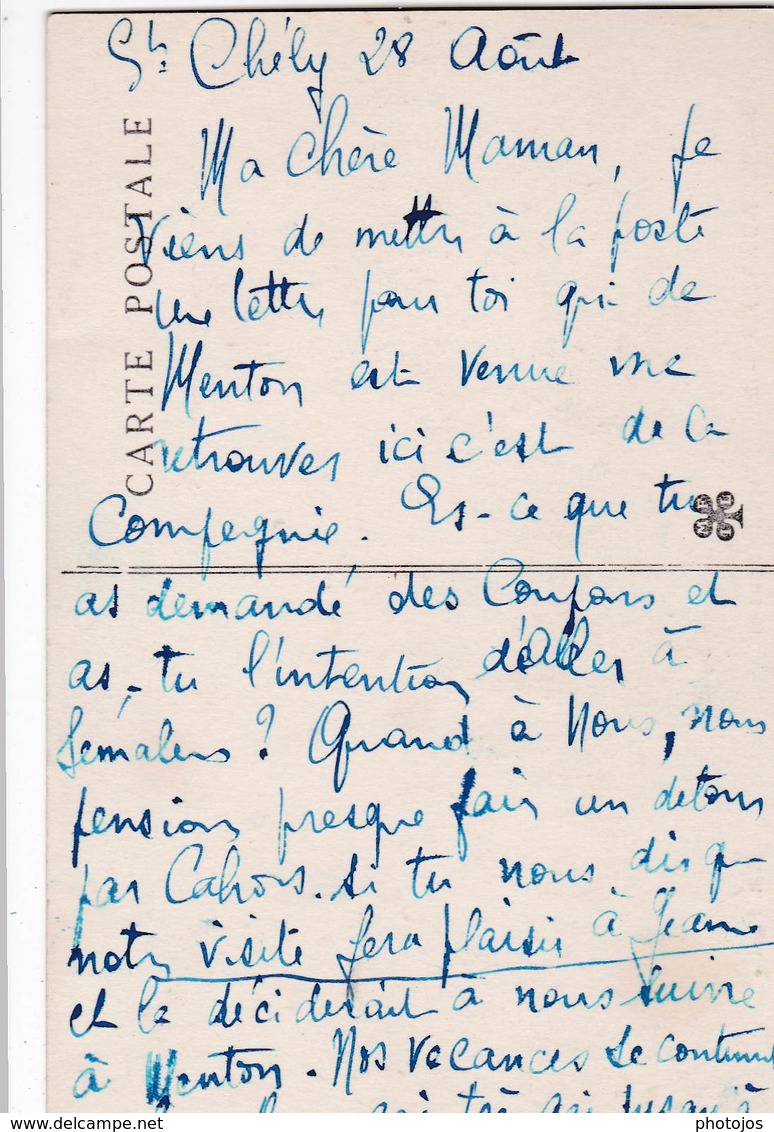 St Chély 28 Août
CARTE POSTALE
Ma chère Maman, je
viens de mettre à la poste
une lettre pour toi qui de
Menton est venue me
retrouver ici c'est de la
Compagnie. Es-ce que tu
as demandé des Coupons et
as-tu l'intention d'aller à
Sémalens ? Quand à nous, nous
pensions presque faire un détour
par Cahors. Si tu nous dis que
notre visite fera plaisir à Jeanne
et la déciderait à nous suivre
à Menton. Nos vacances se continuent
jusqu'à
photojos